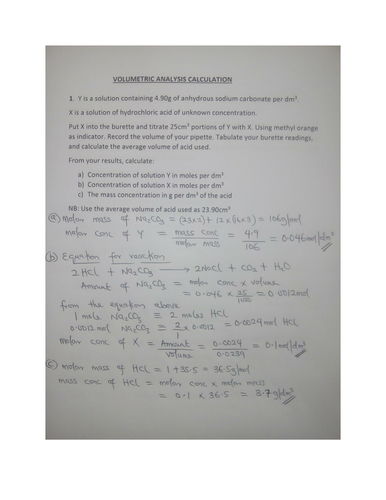 VOLUMETRIC ANALYSIS CALCULATION
1. Y is a solution containing 4.90g of anhydrous sodium carbonate per dm³.
X is a solution of hydrochloric acid of unknown concentration.
Put X into the burette and titrate 25cm³ portions of Y with X. Using methyl orange
as indicator. Record the volume of your pipette. Tabulate your burette readings,
and calculate the average volume of acid used.
From your results, calculate:
a) Concentration of solution Y in moles per dm³
b) Concentration of solution X in moles per dm³
c) The mass concentration in g per dm³ of the acid
NB: Use the average volume of acid used as 23.90cm³
(a) molar mass of Na₂CO₃ = (23×2) + 12 × (16×3) = 106g/mol
molar conc of Y = mass conc / molar mass = 4.9 / 106 = 0.046mol/dm³
(b) Equation for reaction
2HCl + Na₂CO₃ → 2NaCl + CO₂ + H₂O
Amount of Na₂CO₃ = molar conc × volume
= 0.046 × 25/1000 = 0.0012mol
from the equation above
1 mole Na₂CO₃ ≡ 2 moles HCl
0.0012mol Na₂CO₃ ≡ 2/1 × 0.0012 = 0.0024mol HCl
molar conc of X = Amount / volume = 0.0024 / 0.0239 = 0.1mol/dm³
(c) molar mass of HCl = 1 + 35.5 = 36.5g/mol
mass conc of HCl = molar conc × molar mass
= 0.1 × 36.5 = 3.7g/dm³